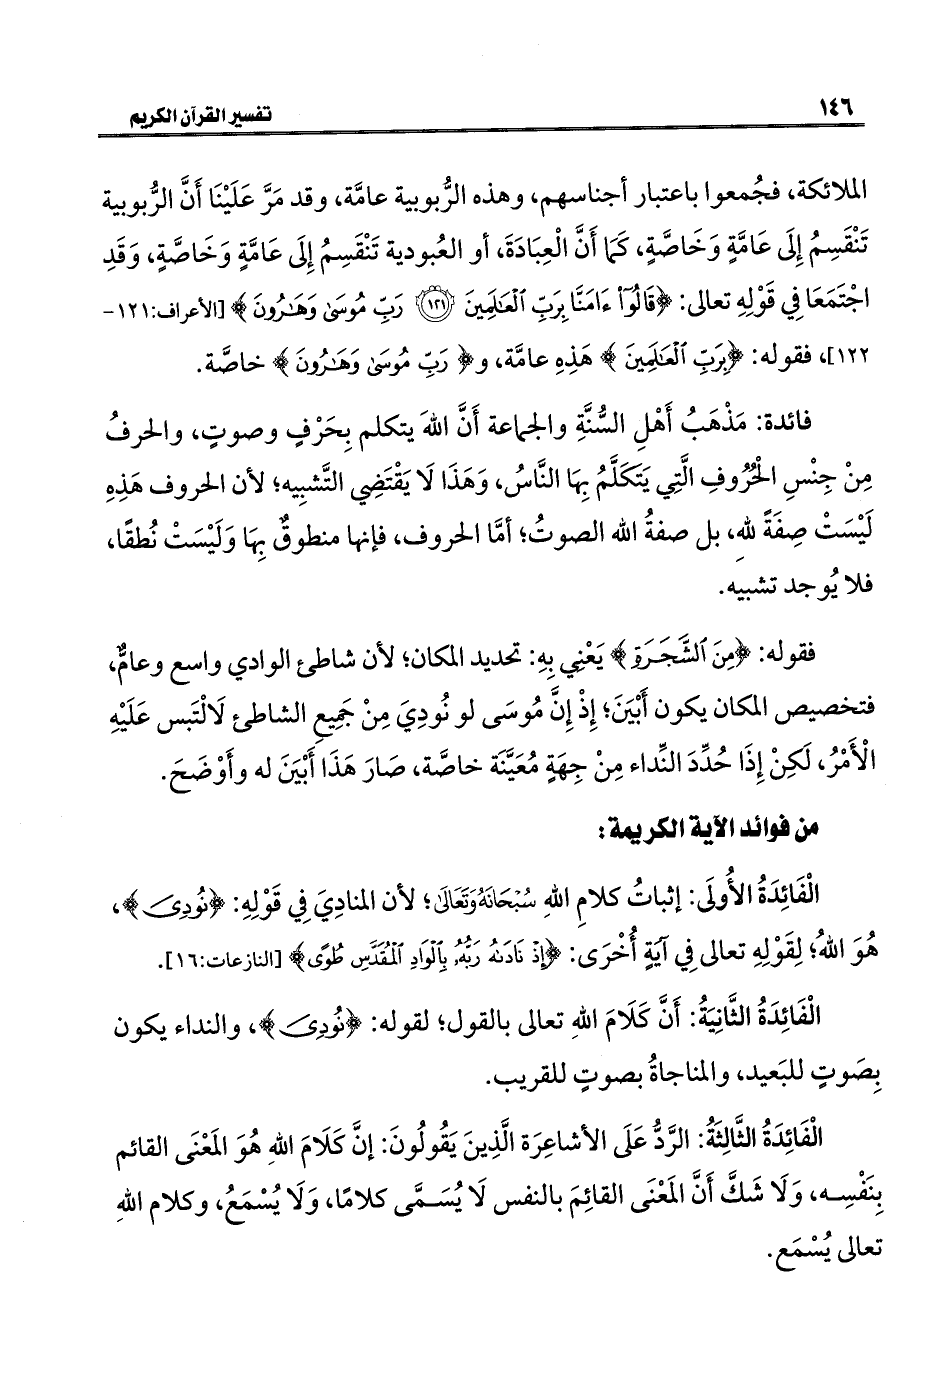 ١٤٦ تفسير القرآن الكريم
الملائكة، فجُمعوا باعتبار أجناسهم، وهذه الرُّبوبية عامَّة، وقد مَرَّ عَلَيْنَا أَنَّ الرُّبوبية
تَنْقَسِمُ إِلَى عَامَّةٍ وَخَاصَّةٍ، كَمَا أَنَّ الْعِبَادَةَ، أو العُبودية تَنْقَسِمُ إِلَى عَامَّةٍ وَخَاصَّةٍ، وَقَدِ
اجْتَمَعَا فِي قَوْلِهِ تعالى: ﴿قَالُوٓاْ ءَامَنَّا بِرَبِّ ٱلْعَٰلَمِينَ ۝١٢١ رَبِّ مُوسَىٰ وَهَٰرُونَ﴾ [الأعراف:١٢١-
١٢٢]، فقوله: ﴿بِرَبِّ ٱلْعَٰلَمِينَ﴾ هَذِهِ عامَّة، و﴿رَبِّ مُوسَىٰ وَهَٰرُونَ﴾ خاصَّة.
فائدة: مَذْهَبُ أَهْلِ السُّنَّةِ والجماعة أَنَّ اللهَ يتكلم بِحَرْفٍ وصوتٍ، والحرفُ
مِنْ جِنْسِ الْحُرُوفِ الَّتِي يَتَكَلَّمُ بِهَا النَّاسُ، وَهَذَا لَا يَقْتَضِي التَّشبِيه؛ لأن الحروف هَذِهِ
لَيْسَتْ صِفَةً للهِ، بل صفةُ الله الصوتُ؛ أمَّا الحروف، فإنها منطوقٌ بِهَا وَلَيْسَتْ نُطقًا،
فلا يُوجد تشبيه.
فقوله: ﴿مِنَ ٱلشَّجَرَةِ﴾ يَعْنِي بِهِ: تحديد المكان؛ لأن شاطئ الوادي واسع وعامٌّ،
فتخصيص المكان يكون أَبْيَنَ؛ إِذْ إِنَّ مُوسَى لو نُودِيَ مِنْ جَمِيعِ الشاطئ لَالْتَبس عَلَيْهِ
الْأَمْرُ، لَكِنْ إِذَا حُدِّدَ النِّداء مِنْ جِهَةٍ مُعَيَّنَة خاصَّة، صَارَ هَذَا أَبْيَنَ له وأَوْضَحَ.
من فوائد الآية الكريمة:
الْفَائِدَةُ الأُولَى: إثباتُ كلامِ اللهِ سُبْحَانَهُ وَتَعَالَىٰ؛ لأن المنادِيَ فِي قَوْلِهِ: ﴿نُودِىَ﴾،
هُوَ اللهُ؛ لِقَوْلِهِ تعالى فِي آيَةٍ أُخْرَى: ﴿إِذْ نَادَىٰهُ رَبُّهُۥ بِٱلْوَادِ ٱلْمُقَدَّسِ طُوًى﴾ [النازعات:١٦].
الْفَائِدَةُ الثَّانِيَةُ: أَنَّ كَلَامَ اللهِ تعالى بالقول؛ لقوله: ﴿نُودِىَ﴾، والنداء يكون
بِصَوتٍ للبَعيد، والمناجاةُ بصوتٍ للقريب.
الْفَائِدَةُ الثَّالِثَةُ: الرَّدُّ عَلَى الأشاعِرَة الَّذِينَ يَقُولُونَ: إنَّ كَلَامَ اللهِ هُوَ المَعْنَى القائم
بِنَفْسِه، وَلَا شَكَّ أَنَّ المَعْنَى القائِمَ بالنفس لَا يُسَمَّى كلامًا، وَلَا يُسْمَعُ، وكلام اللهِ
تعالى يُسْمَع.